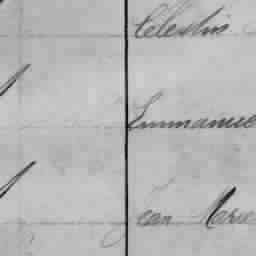 Celestin
Emmanuel
Jean Marie